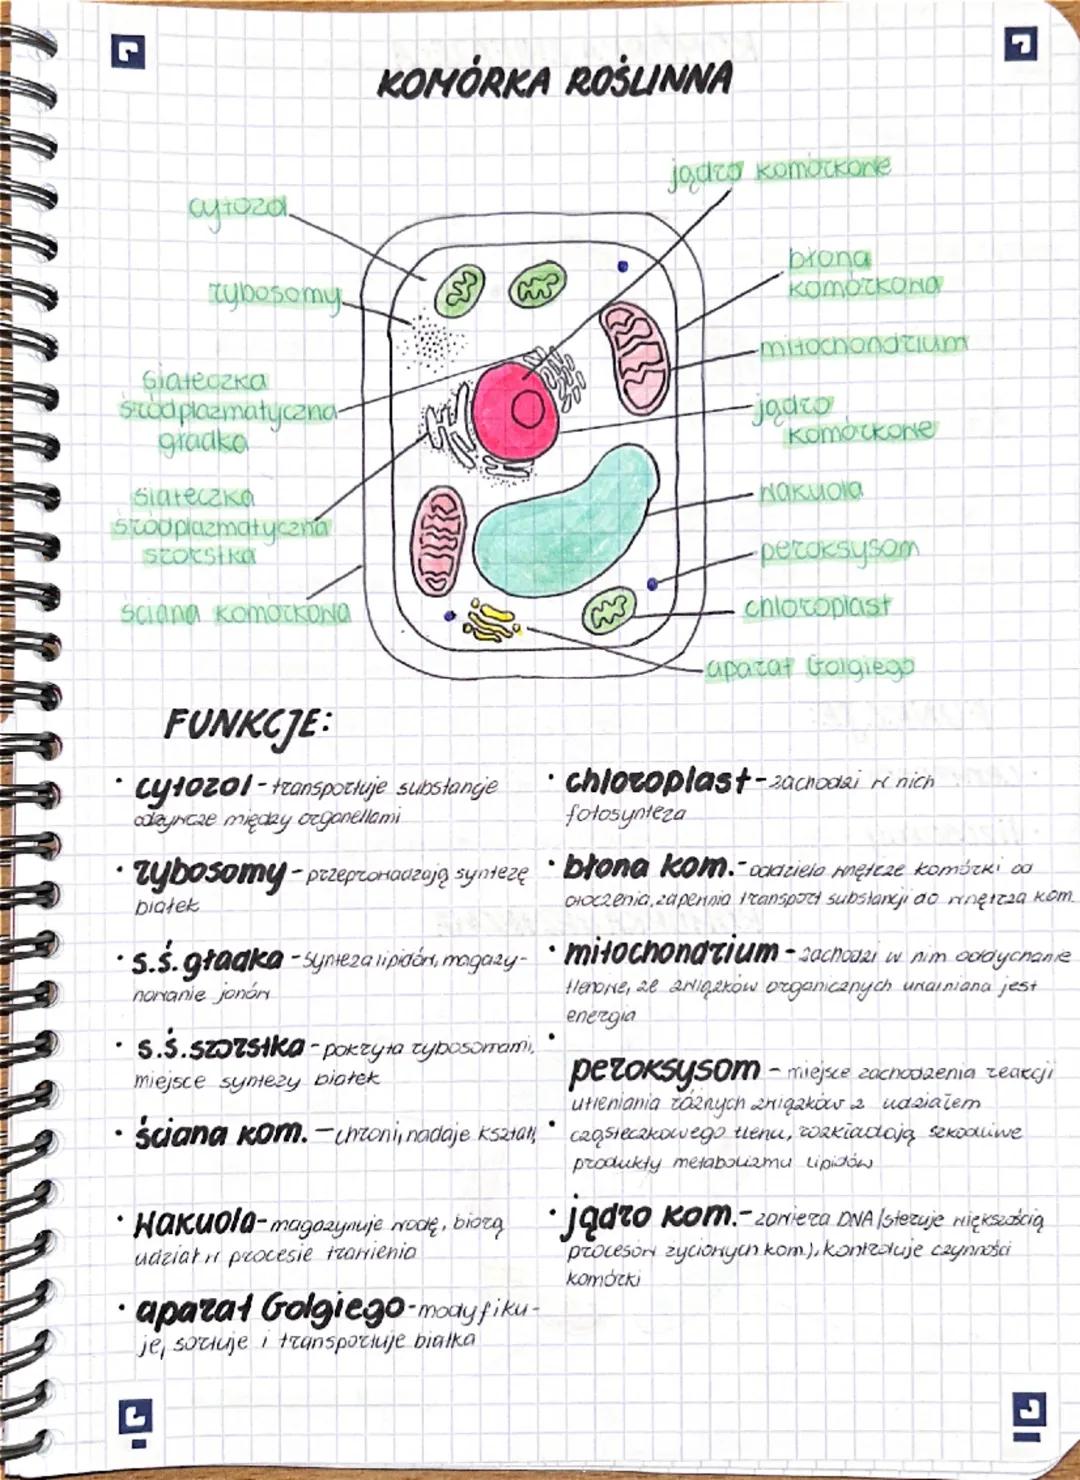 KOMÓRKA ROŚLINNA
jądro komórkowe
cytozol
błona
komórkowa
rybosomy
mitochondrium
siateczka
śródplazmatyczna
gładka
jądro
komórkowe
siateczka
śródplazmatyczna
szorstka
wakuola
peroksysom
ściana komórkowa
chloroplast
aparat Golgiego
FUNKCJE:
· cytozol - transportuje substancje
odżywcze między organellami
· rybosomy - przeprowadzają syntezę
białek
· s.ś. gładka - synteza lipidów, magazy-
nowanie jonów
· s.ś. szorstka - pokryta rybosomami,
miejsce syntezy białek
· ściana kom. - chroni, nadaje kształt
· wakuola - magazynuje wodę, biorą
udział w procesie trawienia
· aparat Golgiego - modyfiku-
je, sortuje i transportuje białka
· chloroplast - zachodzi w nich
fotosynteza
· błona kom. - oddziela wnętrze komórki od
otoczenia, zapewnia transport substancji do wnętrza kom.
· mitochondrium - zachodzi w nim oddychanie
tlenowe, ze związków organicznych uwalniana jest
energia
·
peroksysom - miejsce zachodzenia reakcji
utleniania różnych związków z udziałem
· cząsteczkowego tlenu, rozkładają szkodliwe
produkty metabolizmu lipidów
· jądro kom. - zawiera DNA (steruje większością
procesów życiowych kom.), kontroluje czynności
komórki